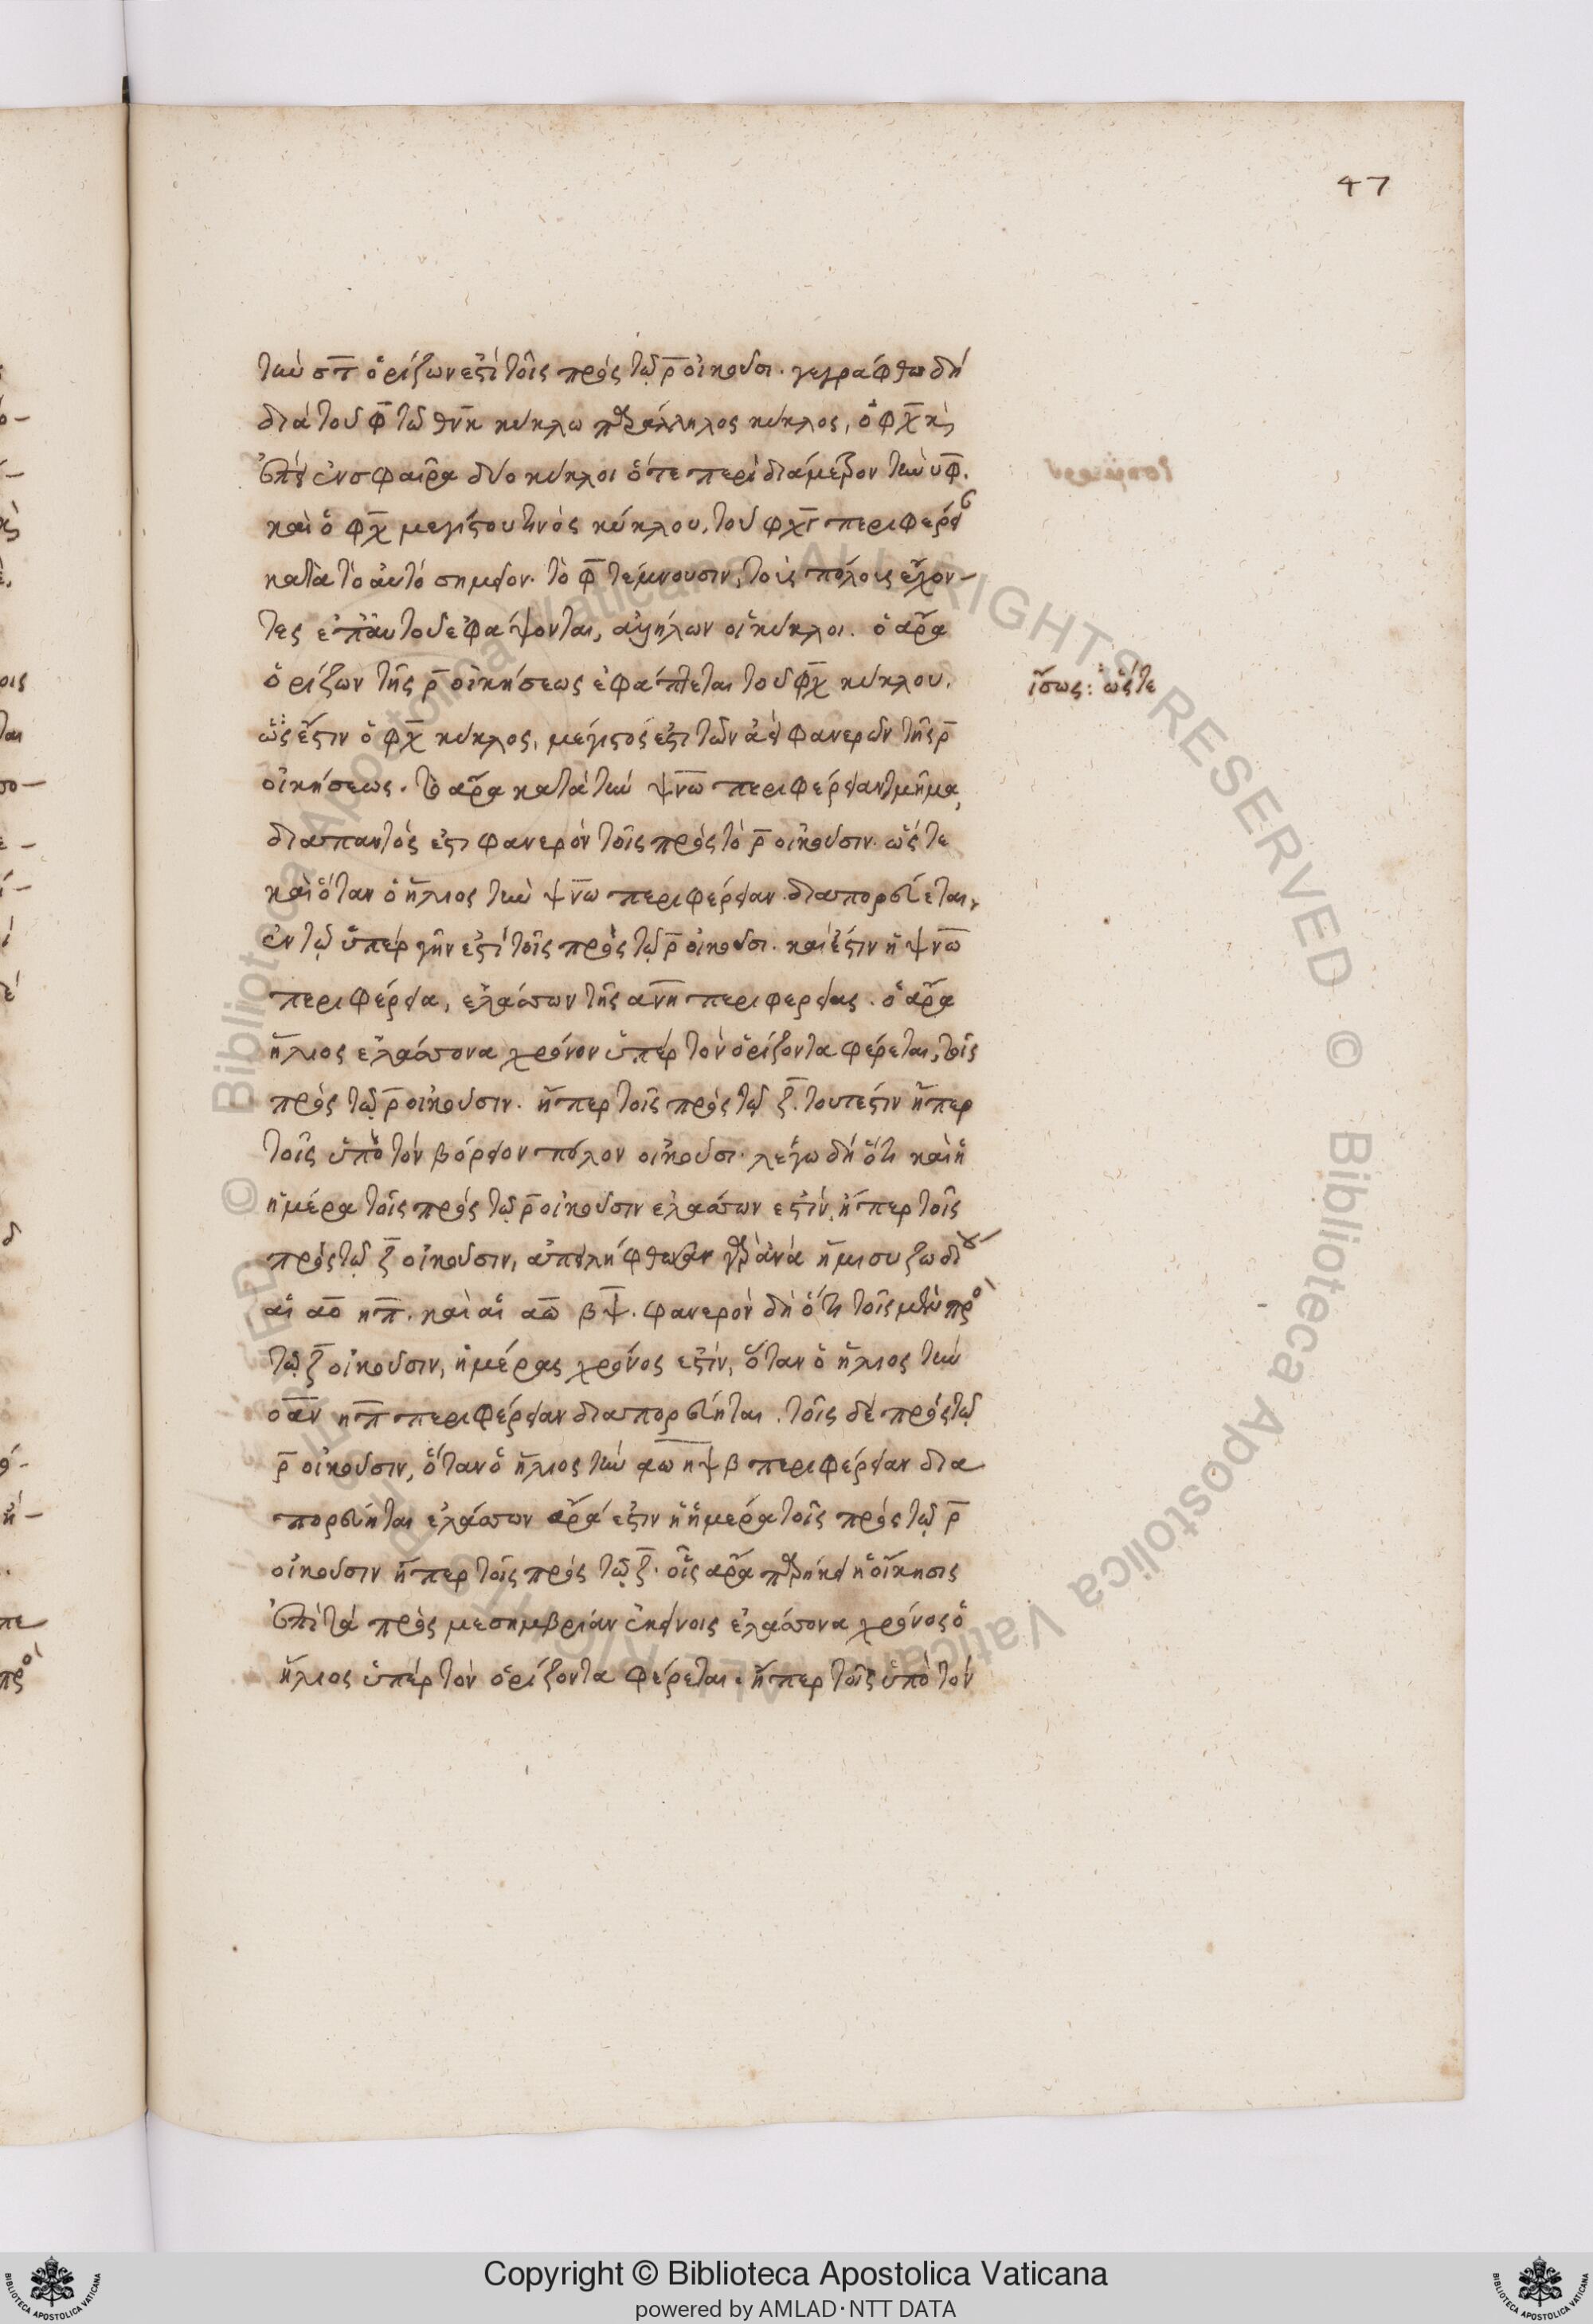 47
τὴν σπ ὁρίζων ἐστὶ τοῖς πρὸς τῷ ρ οἰκοῦσι. γεγράφθω δὴ
διὰ τοῦ φ τῷ θνκ κύκλω παράλληλος κύκλος, ὁ φχ κ
ἐπεὶ ἐν σφαίρα δύο κύκλοι ὅ τε περὶ διάμετρον τὴν υφ.
καὶ ὁ φχ μεγίστου τινὸς κύκλου, τοῦ φχγ περιφέρει
κατὰ τὸ αὐτὸ σημεῖον. τὸ φ τέμνουσιν, τοὺς πόλους ἔχον-
τες ἐπ' αὐτοῦ ἐφάψονται, ἀλλήλων οἱ κύκλοι. ὁ ἄρα
ὁρίζων τῆς ρ οἰκήσεως ἐφάπτεται τοῦ φχ κύκλου.
ἴσως: ὥστε
ὥς ἔστιν ὁ φχ κύκλος, μέγιστός ἐστι τῶν ἀεὶ φανερῶν τῆς ρ
οἰκήσεως. τὸ ἄρα κατὰ τὴν ψνω περιφέρειαν τμῆμα,
διαπαντός ἐστι φανερὸν τοῖς πρὸς τὸ ρ οἰκοῦσιν. ὥστε
καὶ ὅταν ὁ ἥλιος τὴν ψνω περιφέρειαν διαπορεύεται,
ἐν τῷ ὑπὲρ γῆν ἐστὶ τοῖς πρὸς τῷ ρ οἰκοῦσι. καὶ ἔστιν ἡ ψνω
περιφέρεια, ἐλάσσων τῆς ανη περιφερείας. ὁ ἄρα
ἥλιος ἐλάσσονα χρόνον ὑπὲρ τὸν ὁρίζοντα φέρεται, τοῖς
πρὸς τῷ ρ οἰκοῦσιν. ἤπερ τοῖς πρὸς τῷ ξ. τουτέστιν ἤπερ
τοῖς ὑπὸ τὸν βόρειον πόλον οἰκοῦσι. λέγω δὴ ὅτι καὶ ἡ
ἡμέρα τοῖς πρὸς τῷ ρ οἰκοῦσιν ἐλάσσων ἐστὶν, ἤπερ τοῖς
πρὸς τῷ ξ οἰκοῦσιν, ἀπειλήφθωσαν γὰρ ἀνὰ ἥμισυ ζωδίου
αἱ αο ηπ. καὶ αἱ αω βψ. φανερὸν δὴ ὅτι τοῖς μὲν πρὸ
τῷ ξ οἰκοῦσιν, ἡμέρας χρόνος ἐστίν, ὅταν ὁ ἥλιος τὴν
οαν ηπ περιφέρειαν διαπορεύηται. τοῖς δὲ πρὸς τῷ
ρ οἰκοῦσιν, ὅταν ὁ ἥλιος τὴν αω ηψβ περιφέρειαν δια
πορεύηται ἐλάσσων ἄρα ἐστιν ἡ ἡμέρα τοῖς πρὸς τῷ ρ
οἰκοῦσιν ἤπερ τοῖς πρὸς τῷ ξ. οἷς ἄρα παρήκει ἡ οἴκησις
ἐπὶ τὰ πρὸς μεσημβρίαν ἐκείνοις ἐλάσσονα χρόνος ὁ
ἥλιος ὑπὲρ τὸν ὁρίζοντα φέρεται. ἤπερ τοῖς ὑπὸ τὸν
Copyright © Biblioteca Apostolica Vaticana
powered by AMLAD·NTT DATA